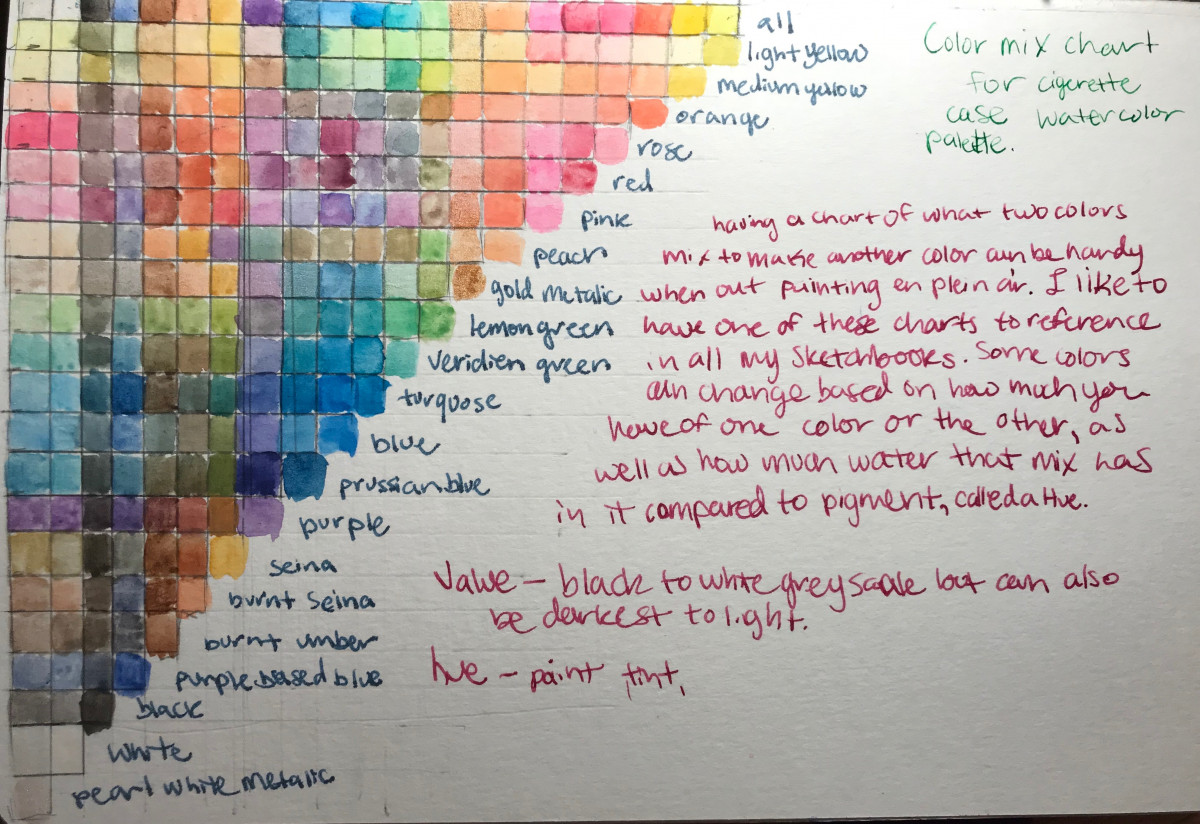 all
light yellow
medium yellow
orange
rose
red
pink
peach
gold metalic
lemon green
veridien green
turquose
blue
prussian blue
purple
seina
burnt seina
burnt umber
purple based blue
black
white
pearl white metalic
Color mix chart
for cigerette
case watercolor
palette.
having a chart of what two colors
mix to make another color can be handy
when out painting en plein air. I like to
have one of these charts to reference
in all my sketchbooks. Some colors
can change based on how much you
have of one color or the other, as
well as how much water that mix has
in it compared to pigment, called a Hue.
Value – black to white grey scale but can also
be darkest to light.
hue – paint tint,